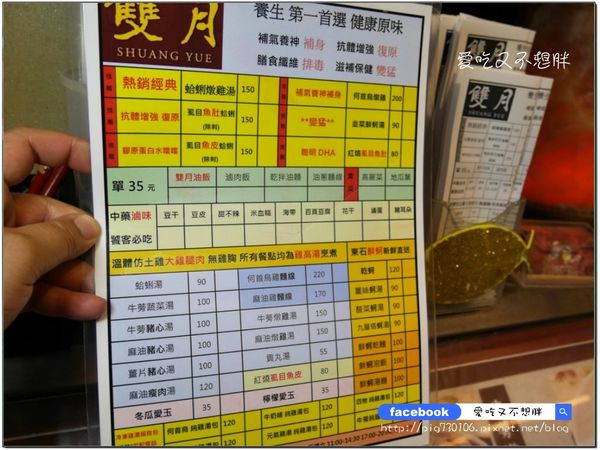 雙月
SHUANG YUE
養生 第一首選 健康原味
補氣養神 補身 抗體增強 復原
膳食纖維 排毒 滋補保健 變猛
熱銷經典 蛤蜊燉雞湯 150 補氣養神補身 何首烏燉雞 200
抗體增強 復原 虱目魚肚蛤蜊 (除刺) 150 **變猛** 韭菜鮮蚵湯 90
膠原蛋白水噹噹 虱目魚皮蛤蜊 (除刺) 150 聰明DHA 紅燒虱目魚肚 80
單 35元 雙月油飯 滷肉飯 乾拌油麵 油蔥麵線 高麗菜 地瓜葉
中藥滷味 豆干 豆皮 甜不辣 米血糕 海帶 百頁豆腐 花干 滷蛋 豬耳朵
饕客必吃
溫體仿土雞大雞腿肉 無雞胸 所有餐點均為雞高湯烹煮 東石鮮蚵新鮮直送
蛤蜊湯 90 何首烏雞麵線 220 乾蚵 120
牛蒡蔬菜湯 100 麻油雞麵線 170 薑絲蚵湯 90
牛蒡豬心湯 100 牛蒡燉雞湯 150 酸菜蚵湯 90
麻油豬心湯 100 麻油燉雞湯 150 九層塔蚵湯 90
薑片豬心湯 100 貢丸湯 55 鮮蚵乾麵 100
麻油瘦肉湯 120 紅燒虱目魚皮 80 鮮蚵泡飯 100
冬瓜愛玉 35 檸檬愛玉 35 鮮蚵湯麵 100
何首烏 純雞湯包 120 牛奶埔 純雞湯包 120 四物 純雞湯包 120
120 元氣湯 純雞湯包 120 120
11:00-14:30
愛吃又不想胖
雙月
SHUANG YUE
facebook 愛吃又不想胖
http://pig730106.pixnet.net/blog